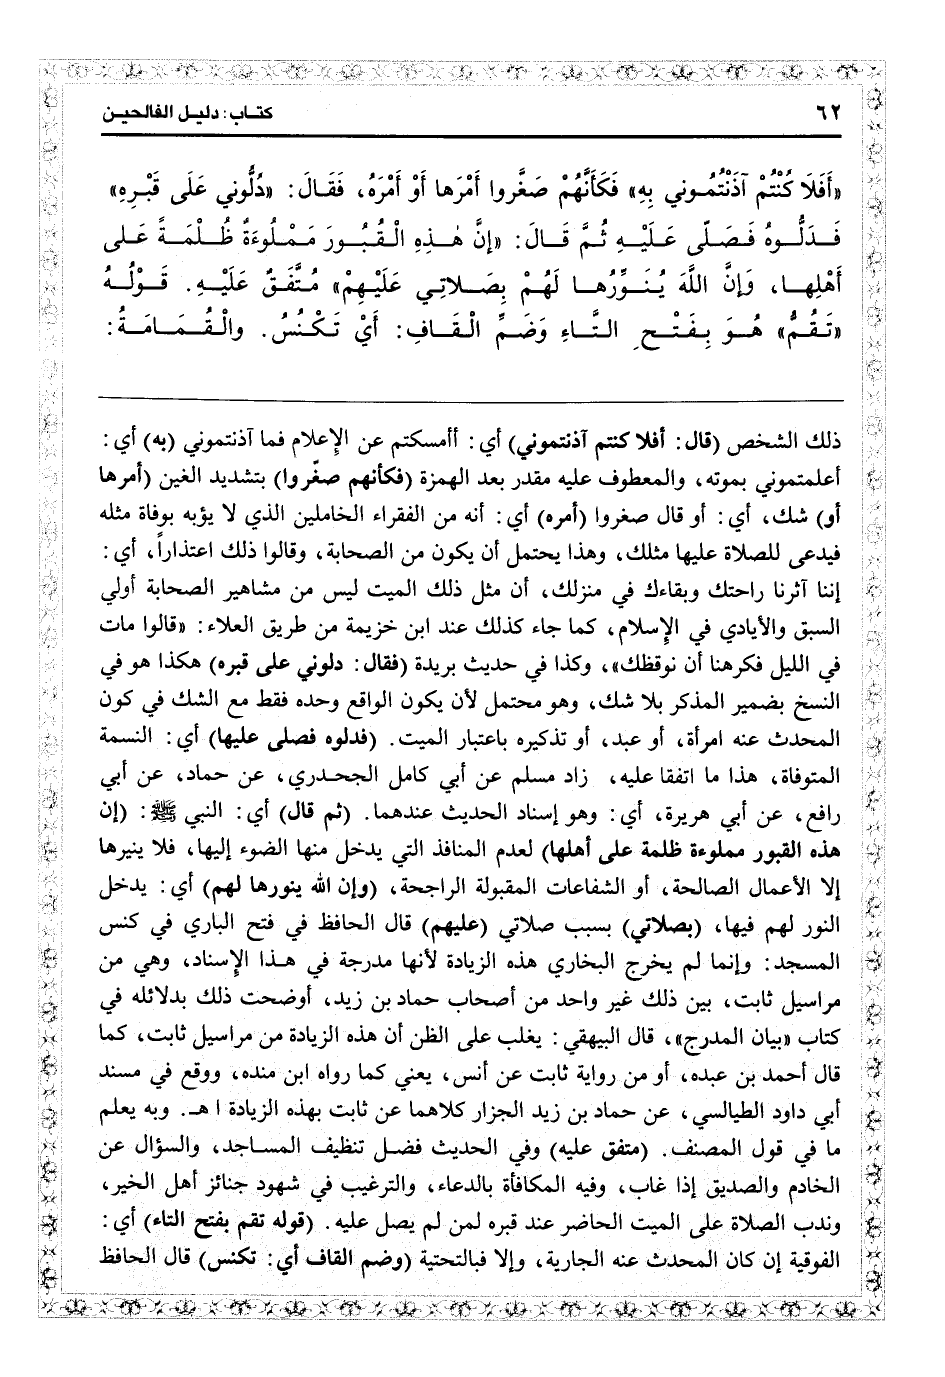 ٦٢
كتاب: دليل الفالحين
«أَفَلَا كُنْتُمْ آذَنْتُمُوني بِهِ» فَكَأَنَّهُمْ صَغَّروا أَمْرَها أَوْ أَمْرَهُ، فَقَالَ: «دُلُّوني عَلَى قَبْرِهِ»
فَدَلُّوهُ فَصَلّى عَلَيْهِ ثُمَّ قَالَ: «إنَّ هٰذِهِ الْقُبُورَ مَمْلُوءَةٌ ظُلْمَةً عَلى
أَهْلِها، وَإنَّ اللَّهَ يُنَوِّرُها لَهُمْ بِصَلاتِي عَلَيْهِمْ» مُتَّفَقٌ عَلَيْهِ. قَوْلُهُ
«تَقُمُّ» هُوَ بِفَتْحِ التَّاءِ وَضَمِّ الْقَافِ: أَيْ تَكْنُسُ. والْقُمَامَةُ:
ذلك الشخص (قال: أفلا كنتم آذنتموني) أي: أأمسكتم عن الإعلام فما آذنتموني (به) أي:
أعلمتموني بموته، والمعطوف عليه مقدر بعد الهمزة (فكأنهم صغّروا) بتشديد الغين (أمرها
أو) شك، أي: أو قال صغروا (أمره) أي: أنه من الفقراء الخاملين الذي لا يؤبه بوفاة مثله
فيدعى للصلاة عليها مثلك، وهذا يحتمل أن يكون من الصحابة، وقالوا ذلك اعتذاراً، أي:
إننا آثرنا راحتك وبقاءك في منزلك، أن مثل ذلك الميت ليس من مشاهير الصحابة أولي
السبق والأيادي في الإسلام، كما جاء كذلك عند ابن خزيمة من طريق العلاء: «قالوا مات
في الليل فكرهنا أن نوقظك»، وكذا في حديث بريدة (فقال: دلوني على قبره) هكذا هو في
النسخ بضمير المذكر بلا شك، وهو محتمل لأن يكون الواقع وحده فقط مع الشك في كون
المحدث عنه امرأة، أو عبد، أو تذكيره باعتبار الميت. (فدلوه فصلى عليها) أي: النسمة
المتوفاة، هذا ما اتفقا عليه، زاد مسلم عن أبي كامل الجحدري، عن حماد، عن أبي
رافع، عن أبي هريرة، أي: وهو إسناد الحديث عندهما. (ثم قال) أي: النبي ﷺ: (إن
هذه القبور مملوءة ظلمة على أهلها) لعدم المنافذ التي يدخل منها الضوء إليها، فلا ينيرها
إلا الأعمال الصالحة، أو الشفاعات المقبولة الراجحة، (وإن الله ينورها لهم) أي: يدخل
النور لهم فيها، (بصلاتي) بسبب صلاتي (عليهم) قال الحافظ في فتح الباري في كنس
المسجد: وإنما لم يخرج البخاري هذه الزيادة لأنها مدرجة في هذا الإسناد، وهي من
مراسيل ثابت، بين ذلك غير واحد من أصحاب حماد بن زيد، أوضحت ذلك بدلائله في
كتاب «بيان المدرج»، قال البيهقي: يغلب على الظن أن هذه الزيادة من مراسيل ثابت، كما
قال أحمد بن عبده، أو من رواية ثابت عن أنس، يعني كما رواه ابن منده، ووقع في مسند
أبي داود الطيالسي، عن حماد بن زيد الجزار كلاهما عن ثابت بهذه الزيادة ا هـ. وبه يعلم
ما في قول المصنف. (متفق عليه) وفي الحديث فضل تنظيف المساجد، والسؤال عن
الخادم والصديق إذا غاب، وفيه المكافأة بالدعاء، والترغيب في شهود جنائز أهل الخير،
وندب الصلاة على الميت الحاضر عند قبره لمن لم يصل عليه. (قوله تقم بفتح التاء) أي:
الفوقية إن كان المحدث عنه الجارية، وإلا فبالتحتية (وضم القاف أي: تكنس) قال الحافظ